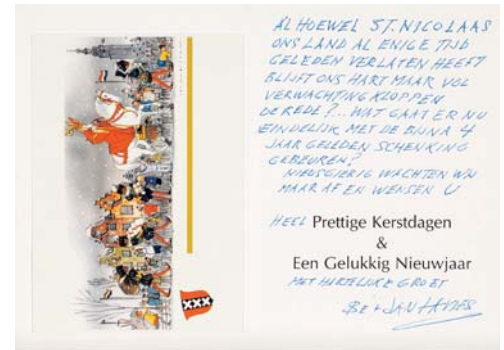 ALHOEWEL ST. NICOLAAS
ONS LAND AL ENIGE TIJD
GELEDEN VERLATEN HEEFT
BLIJFT ONS HART MAAR VOL
VERWACHTING KLOPPEN
DE REDE?... WAT GAAT ER NU
EINDELIJK MET DE BIJNA 4
JAAR GELEDEN SCHENKING
GEBEUREN?
NIEUSGIERIG WACHTEN WIJ
MAAR AF EN WENSEN U
HEEL Prettige Kerstdagen
&
Een Gelukkig Nieuwjaar
MET HARTELIJKE GROET
XXX